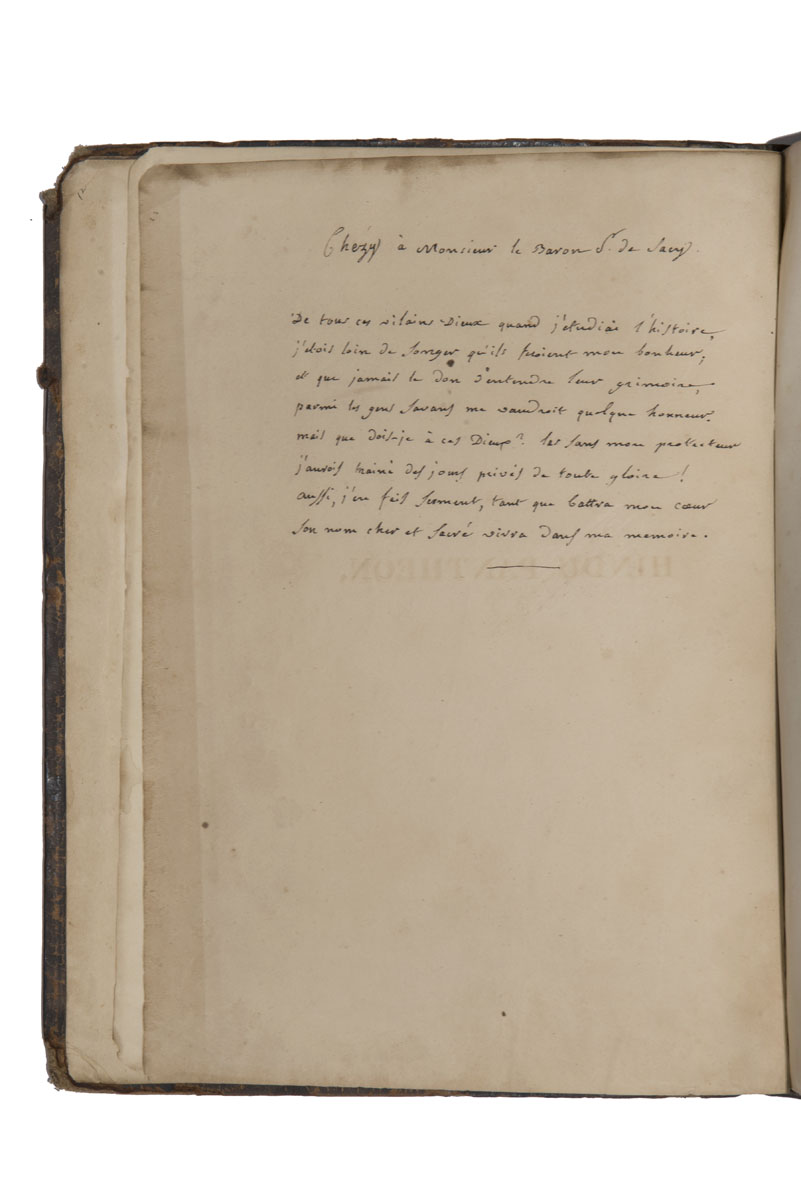 Chézy à Monsieur le Baron S. de Sacy.
De tous ces vilains Dieux quand j'étudiai l'histoire,
j'étois loin de songer qu'ils feroient mon bonheur,
et que jamais le don d'entendre leur grimoire,
parmi les gens savans me vaudroit quelque honneur.
mais que dois-je à ces Dieux? las sans mon protecteur
j'aurois traîné des jours privés de toute gloire!
aussi, j'en fais serment, tant que battra mon cœur
son nom cher et sacré vivra dans ma memoire.
HINDU PANTHEON.